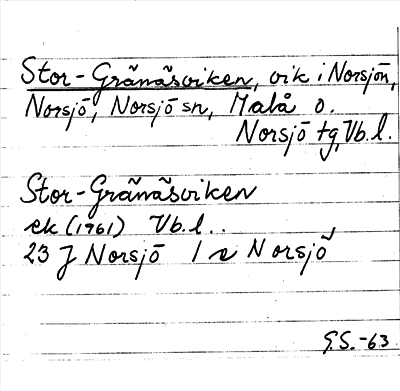 Stor-Gränäsviken, vik i Norsjön,
Norsjö, Norsjö sn, Malå o.
Norsjö tg, Vb.l.
Stor-Gränäsviken
ek (1961) Vb.l..
23 J Norsjö 1 Norsjö
G.S.-63